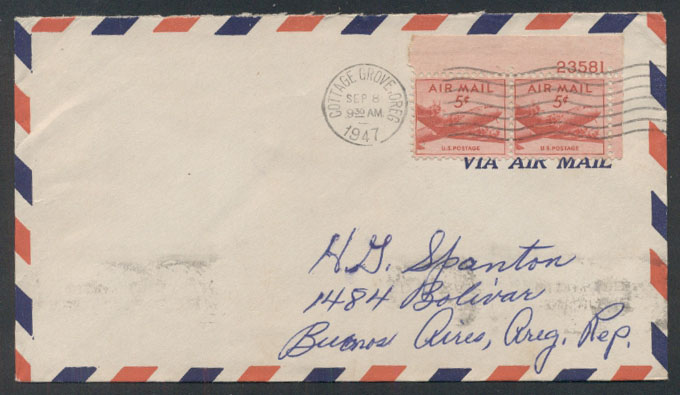 23581
AIR MAIL AIR MAIL
5¢ 5¢
U.S. POSTAGE U.S. POSTAGE
COTTAGE GROVE, OREG
SEP 8
9 30 AM
1947
VIA AIR MAIL
H.G. Spanton
1484 Bolivar
Buenos Aires, Areg. Rep.